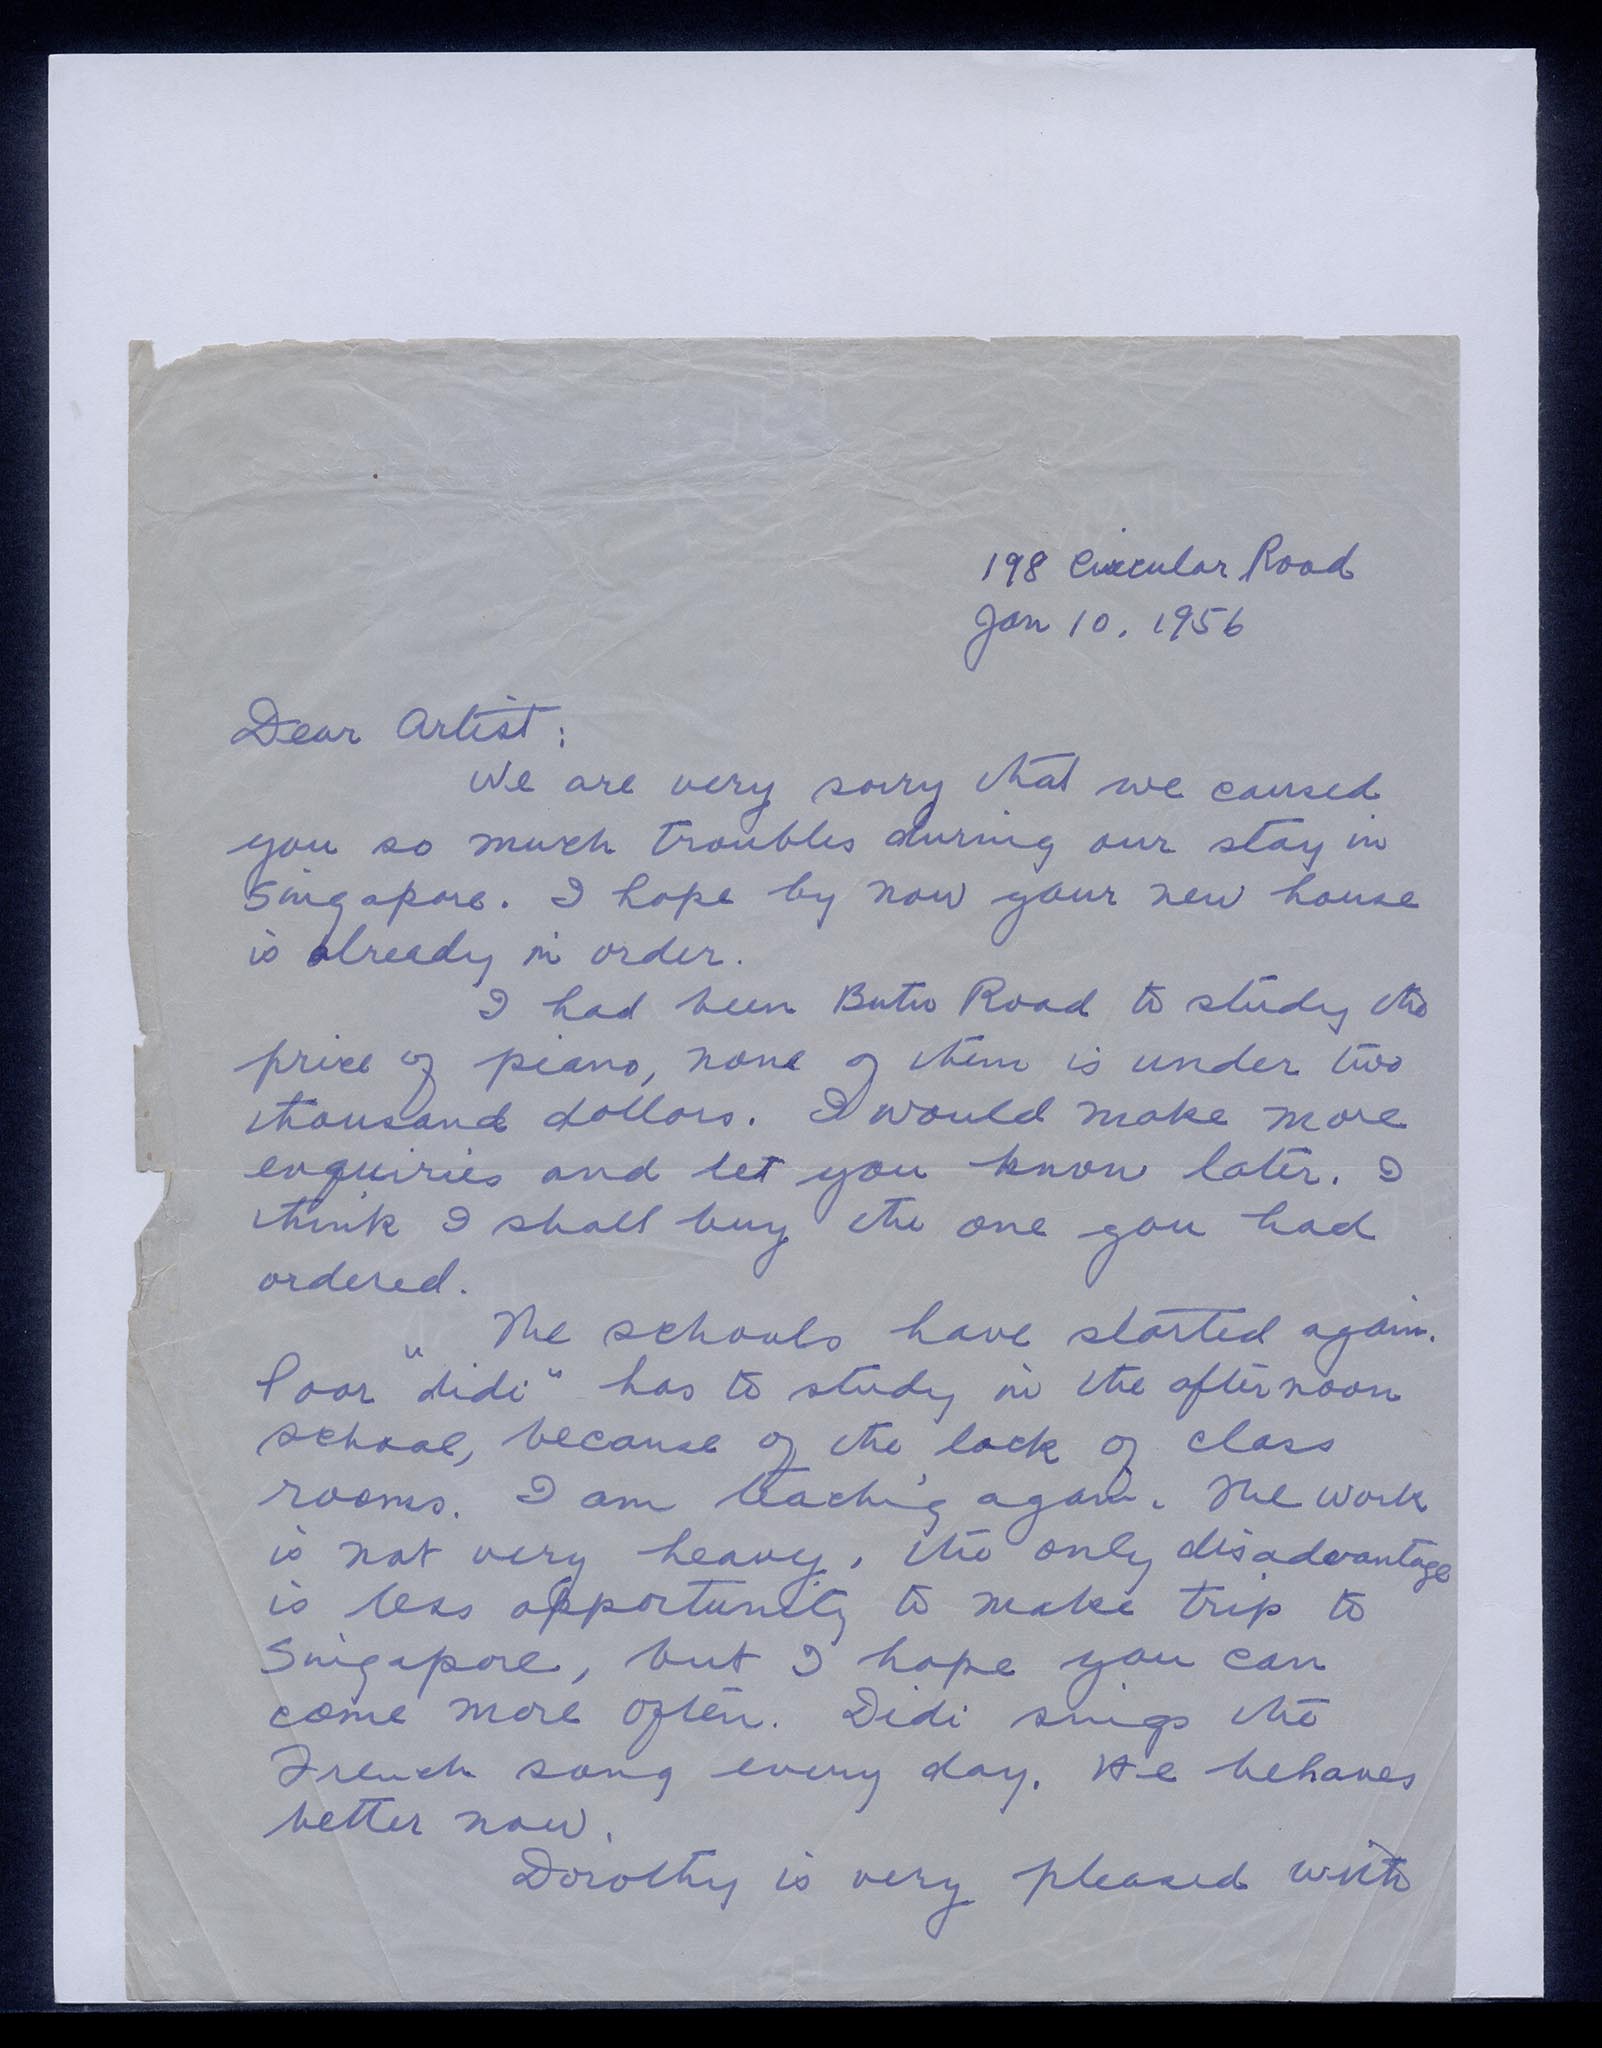 198 Circular Road
Jan 10, 1956
Dear Artist:
We are very sorry that we caused
you so much troubles during our stay in
Singapore. I hope by now your new house
is already in order.
I had been Batu Road to study the
price of piano, none of them is under two
thousand dollars. I would make more
enquiries and let you know later. I
think I shall buy the one you had
ordered.
The schools have started again.
Poor "didi" has to study in the afternoon
school, because of the lack of class
rooms. I am teaching again. The work
is not very heavy, the only disadvantage
is less opportunity to make trip to
Singapore, but I hope you can
come more often. Didi sings the
French song every day. He behaves
better now.
Dorothy is very pleased with